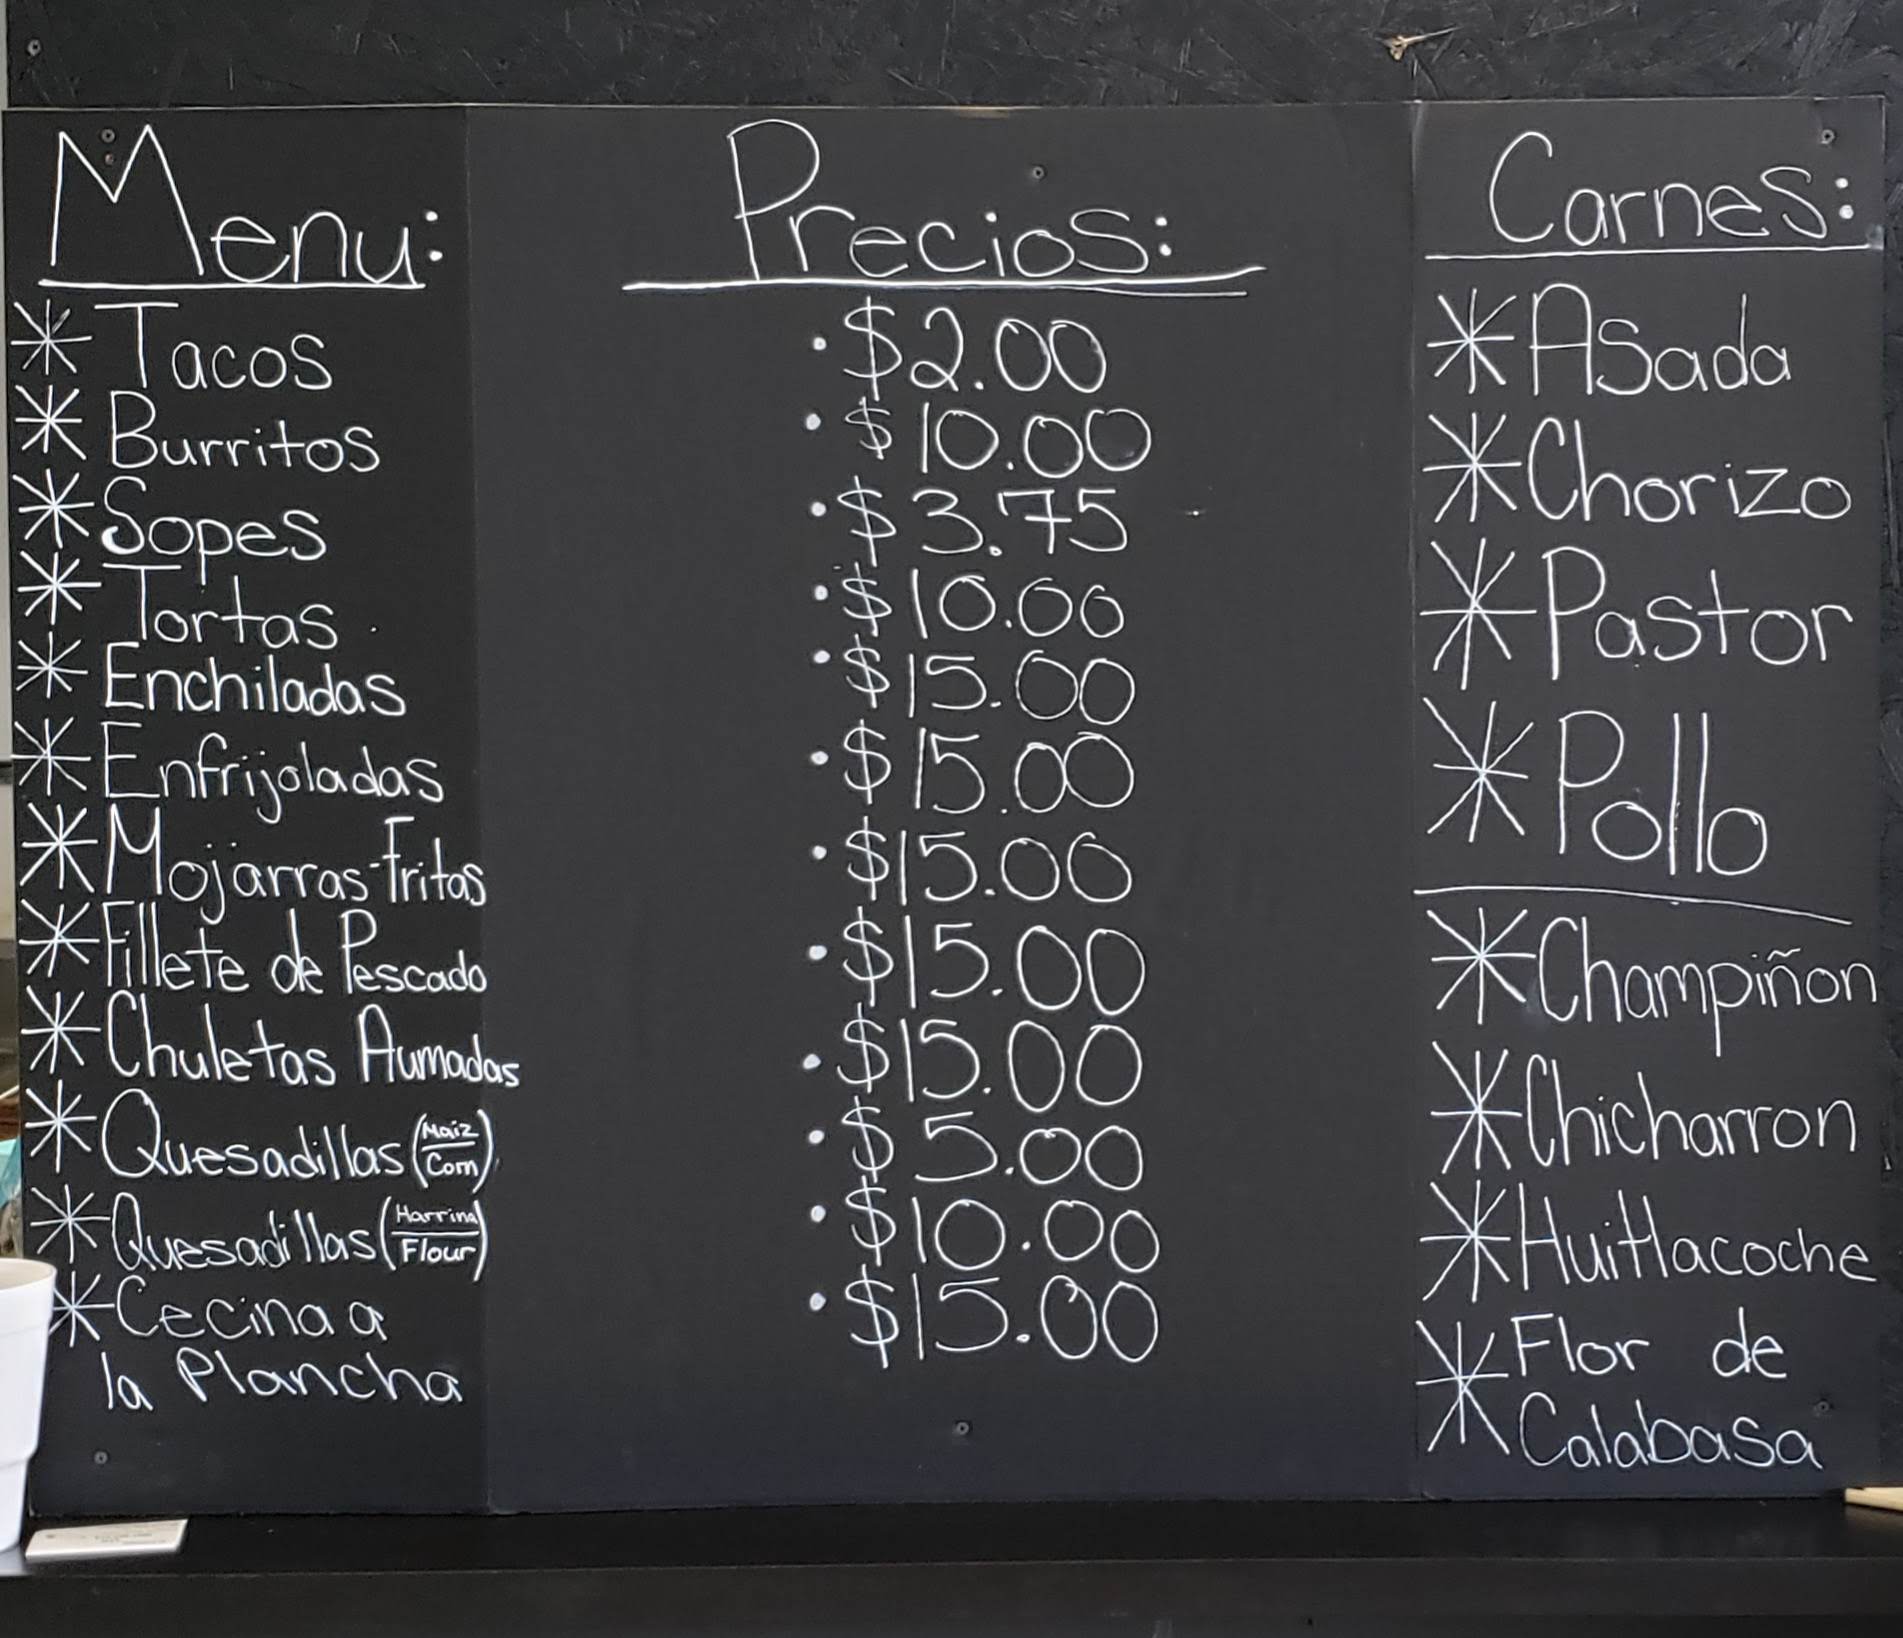 Menu:
* Tacos
* Burritos
* Sopes
* Tortas
* Enchiladas
* Enfrijoladas
* Mojarras-Fritas
* Fillete de Pescado
* Chuletas Aumadas
* Quesadillas (Maiz/Corn)
* Quesadillas (Harrina/Flour)
* Cecina a
la Plancha
Precios:
• $2.00
• $10.00
• $3.75
• $10.00
• $15.00
• $15.00
• $15.00
• $15.00
• $15.00
• $5.00
• $10.00
• $15.00
Carnes:
* Asada
* Chorizo
* Pastor
* Pollo
* Champiñon
* Chicharron
* Huitlacoche
* Flor de
Calabasa